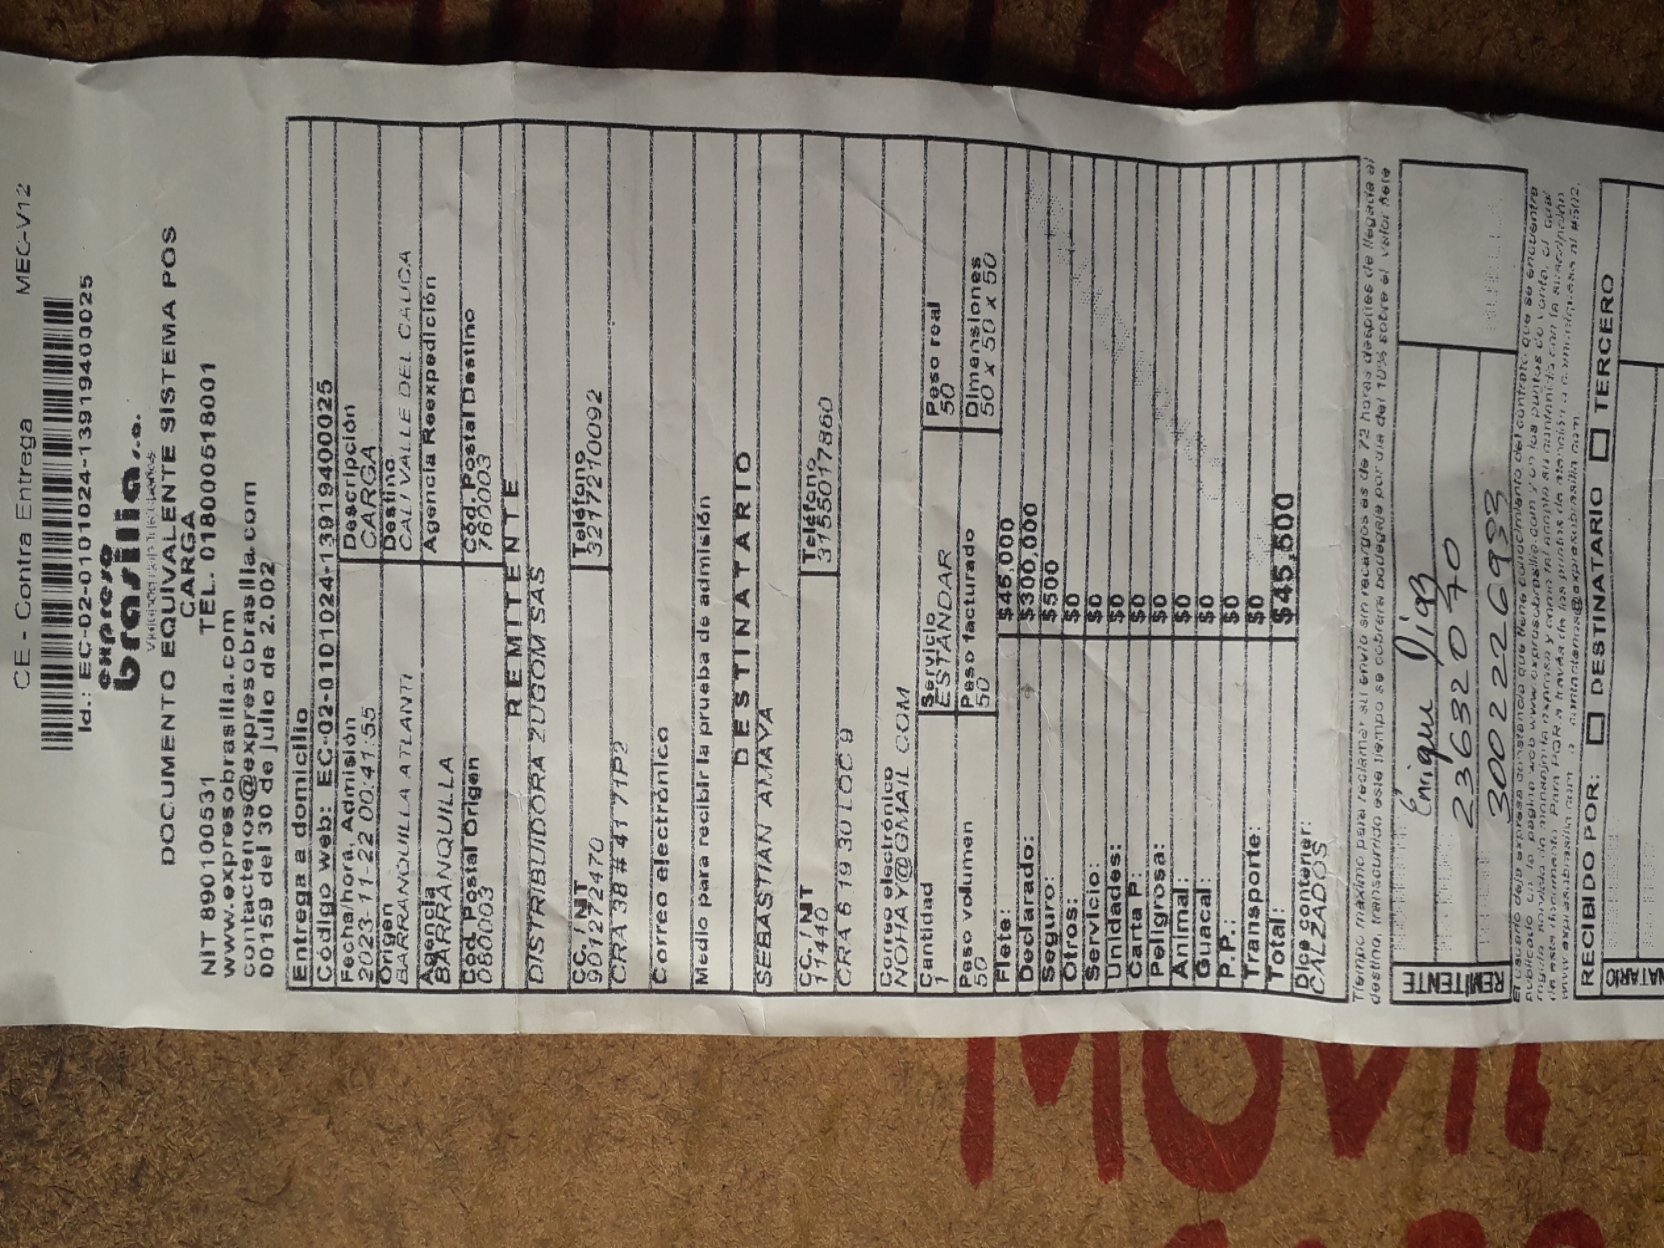 CE - Contra Entrega MEC-V12
Id.: EC-02-0101024-13919400025
expreso
brasilia s.a.
DOCUMENTO EQUIVALENTE SISTEMA POS
CARGA
NIT 890100531 TEL. 0180000518001
www.expresobrasilia.com
contactenos@expresobrasilia.com
00159 del 30 de julio de 2.002
Entrega a domicilio
Código web: EC-02-0101024-13919400025
Fecha/hora. Admisión Descripción
2023-11-22 00:41:55 CARGA
Origen Destino
BARRANQUILLA ATLANTI CALI VALLE DEL CAUCA
Agencia Agencia Reexpedición
BARRANQUILLA
Cód. Postal Origen Cód. Postal Destino
080003 760003
REMITENTE
DISTRIBUIDORA ZUGOM SAS
CC. / NIT Teléfono
901272470 3217210092
CRA 38 # 41 71P2
Correo electrónico
Medio para recibir la prueba de admisión
DESTINATARIO
SEBASTIAN AMAYA
CC. / NIT Teléfono
11440 3155017860
CRA 6 19 30 LOC 9
Correo electrónico
NOHAY@GMAIL.COM
Cantidad Servicio Peso real
1 ESTANDAR 50
Peso volumen Peso facturado Dimensiones
50 50 50 x 50 x 50
Flete: $45,000
Declarado: $300,000
Seguro: $500
Otros: $0
Servicio: $0
Unidades: $0
Carta P: $0
Peligrosa: $0
Animal: $0
Guacal: $0
P.P.: $0
Transporte: $0
Total: $45,500
Dice contener:
CALZADOS
Tiempo máximo para reclamar su envío sin recargos es de 72 horas después de llegada al
destino, transcurrido este tiempo se cobrará bodegaje por día del 10% sobre el valor flete
REMITENTE
Enrique Diaz
23632070
3002226992
RECIBIDO POR: DESTINATARIO TERCERO
MOVIL